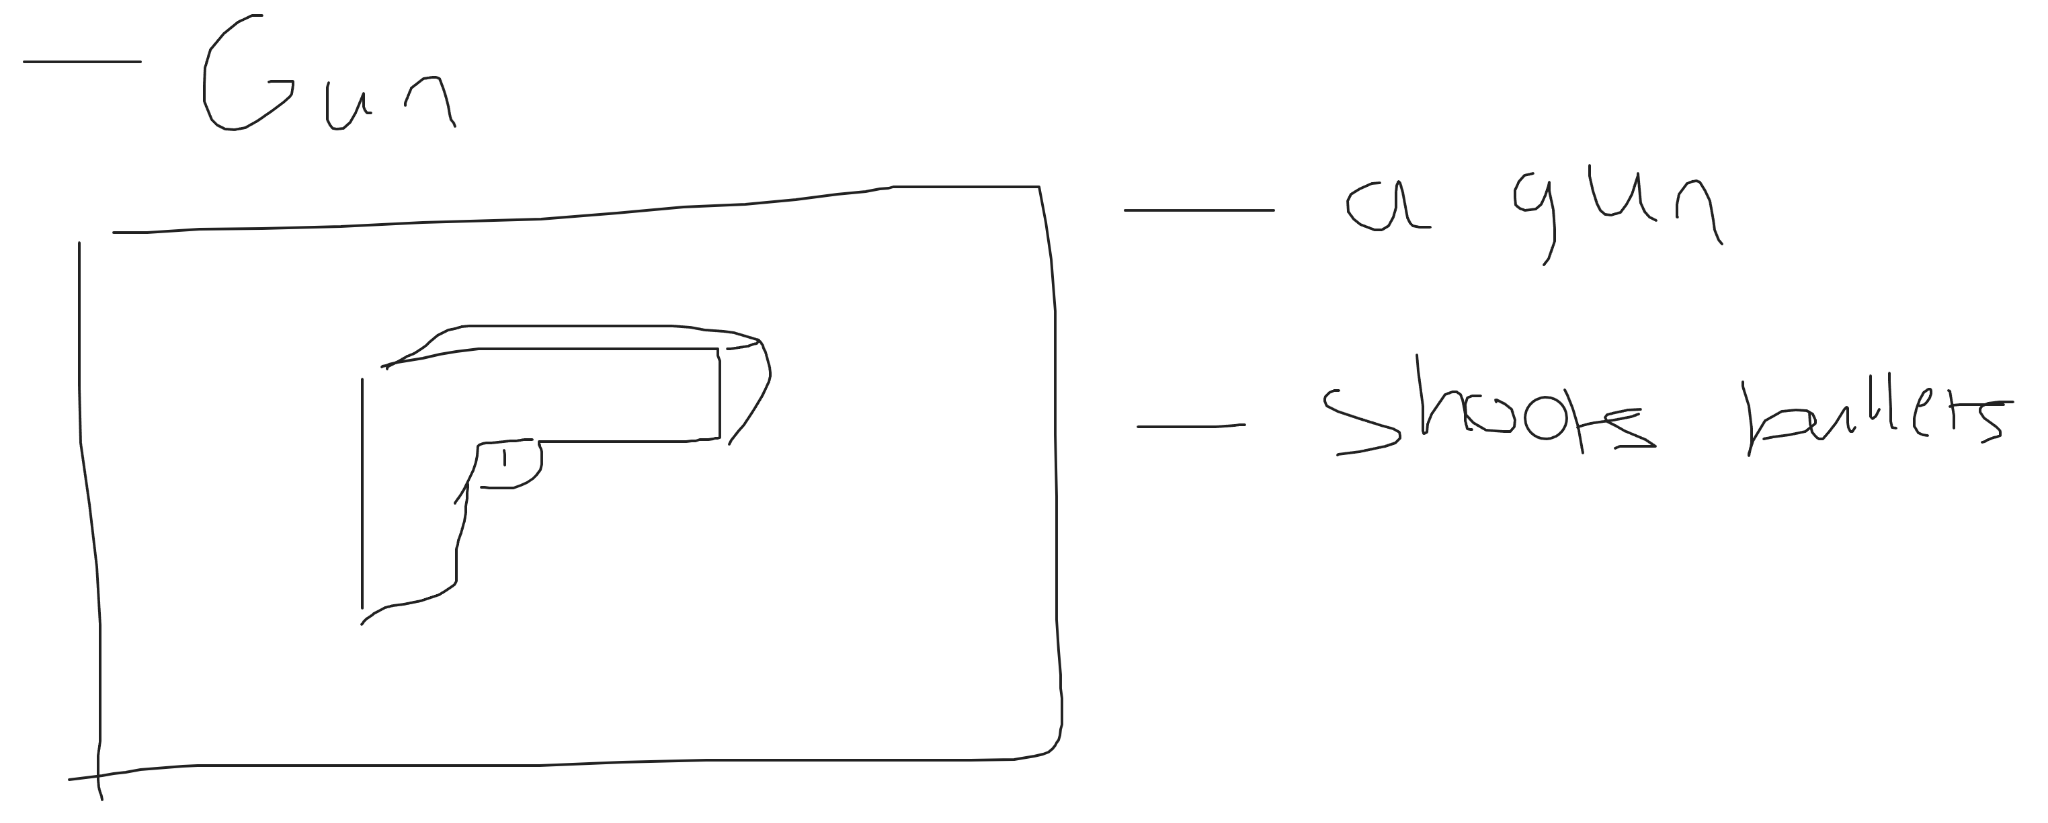 — Gun
— a gun
— shoots bullets